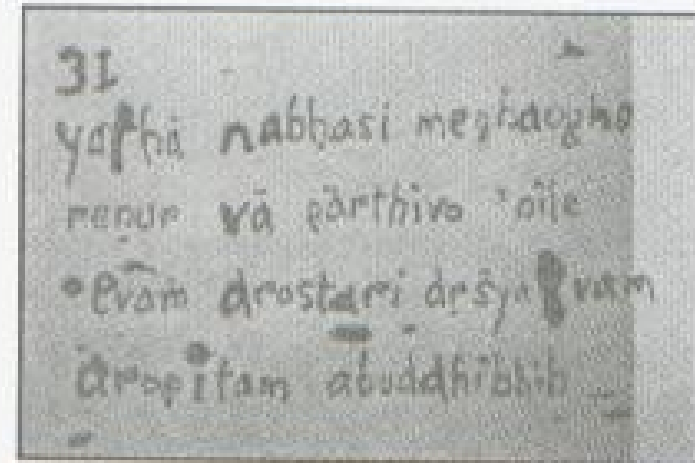 31
yathā nabhasi meghaogho
reṇur vā pārthivo 'nile
evam drastari drśyatvam
āropitam abuddhibhih